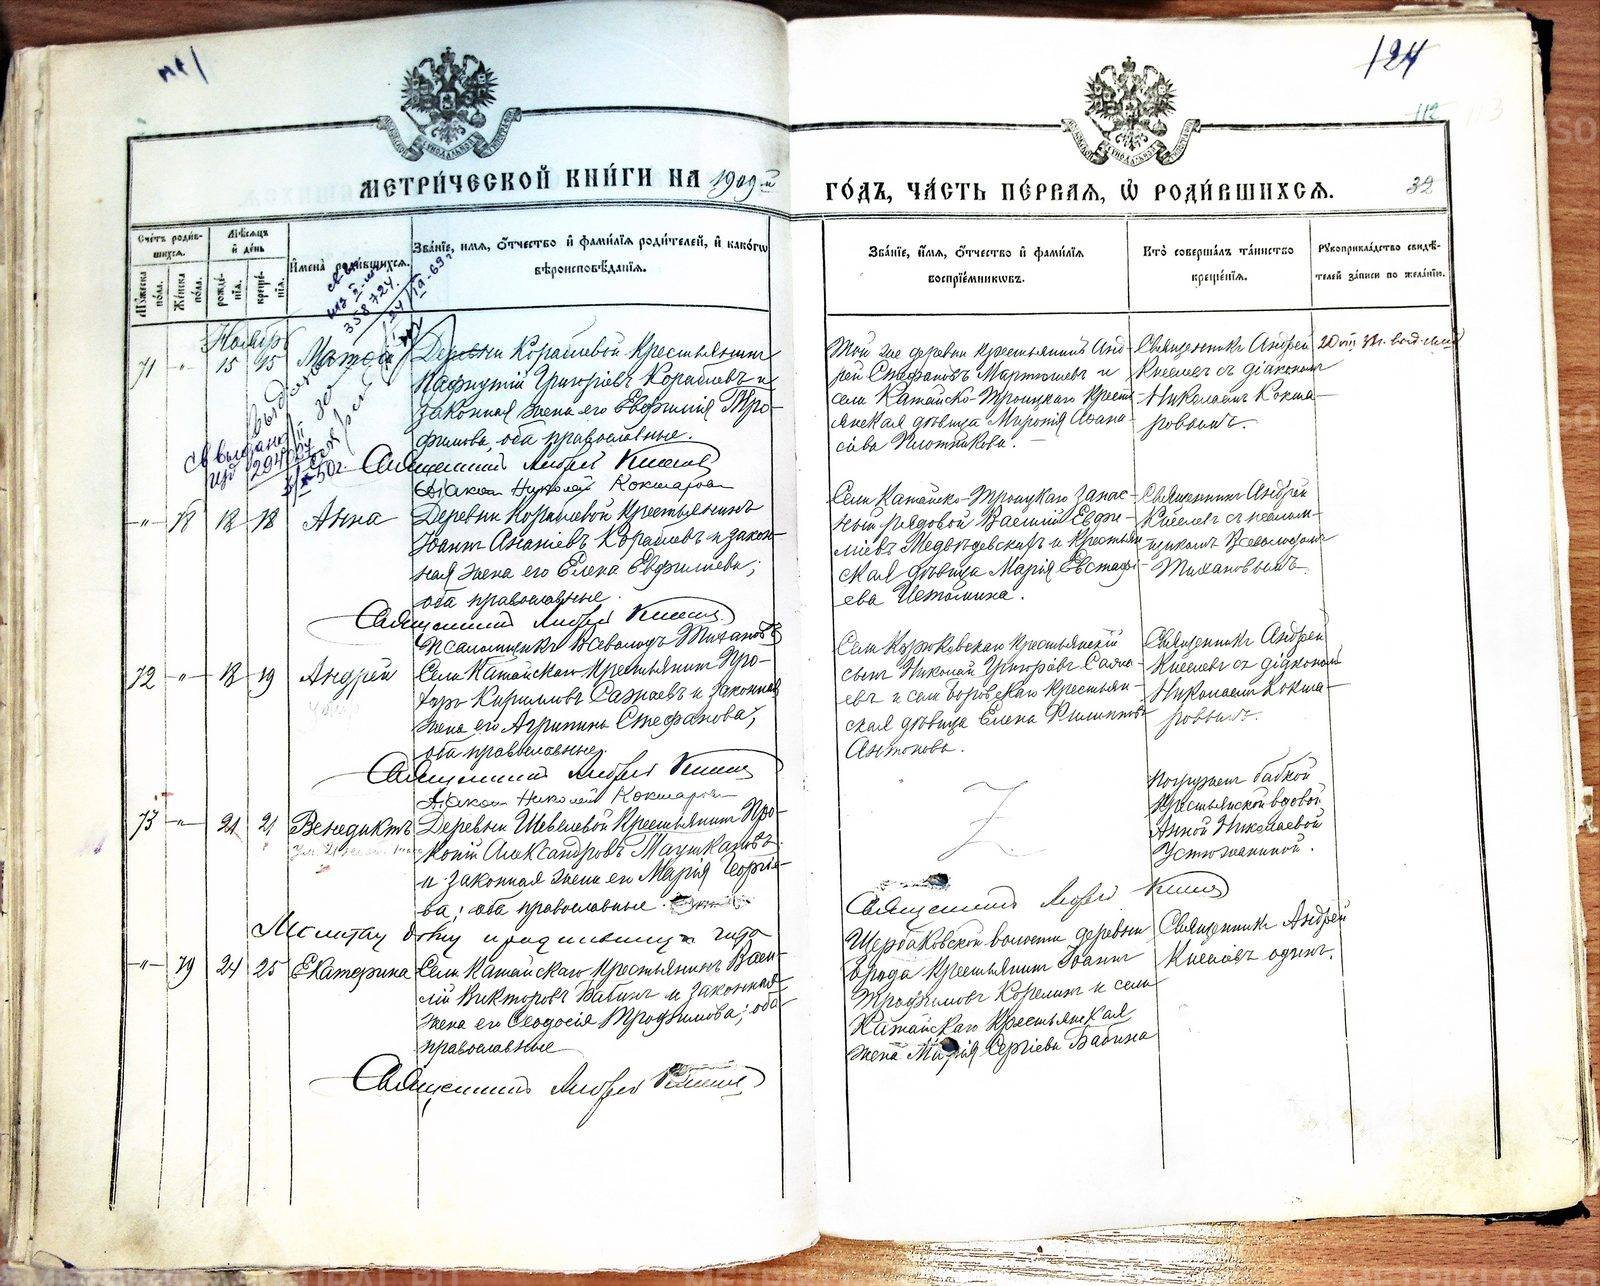 124
112
113
МЕТРИ́ЧЕСКОЙ КНИ́ГИ НА 1909й
ГО́ДЪ, ЧА́СТЬ ПЕ́РВАЯ, Ѡ РОДИ́ВШИХСѦ.
32
Сче́тъ роди́в-
шихсѧ.
Му́жеска по́ла.
Же́нска по́ла.
Мѣ́сѧцъ и де́нь
рожде́-
нїѧ.
креще́-
нїѧ.
И҆мена̀ роди́вшихсѧ.
Зва́нїе, и҆мя, ѻ҆́тчество и҆ фами́лїѧ роди́телей, и҆ како́гѡ
вѣроисповѣ́данїѧ.
Зва́нїе, и҆́мя, ѻ҆́тчество и҆ фами́лїѧ
воспрїе́мникѡвъ.
Кто̀ соверша́лъ та́инство
креще́нїѧ.
Рꙋкоприкла́дство свидѣ́-
телей за́писи по жела́нїю.
358724.
Ноябрь
71 -"- 15 15
Деревни Кораблевой крестьянинъ
Пафнутій Григоріевъ Кораблевъ и
законная жена его Евфимія Тро-
фимова, оба православные.
Священникъ Андрей Киселевъ
Діаконъ Николай Кокшаровъ
Той же деревни крестьянинъ Анд-
рей Стефановъ Мартюшевъ и
села Катайско-Троицкаго крест-
янская дѣвица Марѳа Аѳана-
сьева Плотникова.
Священникъ Андрей
Киселевъ съ діакономъ
Николаемъ Кокша-
ровымъ.
-"- 78 18 18 Анна
Деревни Кораблевой крестьянинъ
Іоаннъ Ананіевъ Кораблевъ и закон-
ная жена его Елена Евфиміева;
оба православные.
Священникъ Андрей Киселевъ
Псаломщикъ Всеволодъ Тихановъ
Села Катайско-Троицкаго запас-
ный рядовой Василій Евфи-
міевъ Медвѣдевскихъ и крестьян-
ская дѣвица Марія Евстафі-
ева Истомина.
Священникъ Андрей
Киселевъ съ псалом-
щикомъ Всеволодомъ
Тихановымъ.
72 -"- 18 19 Андрей
Села Катайскаго крестьянинъ Про-
хоръ Кириловъ Сажаевъ и законная
жена его Агрипина Стефанова;
оба православные.
Священникъ Андрей Киселевъ
Діаконъ Николай Кокшаровъ
сынъ Николай Григорьевъ Сажа-
евъ и села Боровскаго крестьян-
ская дѣвица Елена Филиппова
Антонова.
Священникъ Андрей
Киселевъ съ діакономъ
Николаемъ Кокша-
ровымъ.
73 -"- 21 21 Венедиктъ
Деревни Шевелевой крестьянинъ Про-
копій Александровъ Таушкановъ
и законная жена его Марія Георгіе-
ва; оба православные.
Погружен бабкой
крестьянской вдовой
Анной Николаевой
Устюжаниной.
Священникъ Андрей Киселевъ
Молитву бабку
-"- 79 24 25 Екатерина
Села Катайскаго крестьянинъ Васи-
лій Викторовъ Бабинъ и законная
жена его Ѳеодосія Трофимова; оба
православные
Священникъ Андрей Киселевъ
Щербаковской волости деревни
Брода крестьянинъ Іоаннъ
Трофимовъ Корелинъ и села
Катайскаго крестьянская
жена Марія Сергіева Бабина
Священникъ Андрей
Киселевъ одинъ.